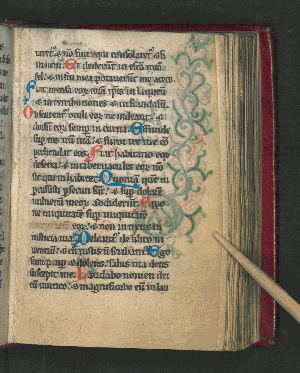 taret᷑ ⁊ nō fuit: ⁊ qui consolaret᷑ ⁊ n̄
inueni. Et dederūt in escā meā
fel: ⁊ in siti mea potauerūt me aceto.
Fiat mensa eoꝝ corā ip̄is in laqueū
⁊ in retributiones ⁊ in scandalū.
Obscurent᷑ oculi eoꝝ ne uideant: ⁊
dorsū eoꝝ semꝑ incurua. Effunde
suꝑ eos irā tuā: ⁊ furor ire tue cō
prehendat eos. Fiat habitatio eoꝝ
deserta: ⁊ in tabernaculis eoꝝ non
sit qui inhabitet. Quoniā quē tu
ꝑcussisti ꝑsecuti sūt: ⁊ suꝑ dolorē
uulnerū meoꝝ addiderūt. Appo
ne iniquitatē suꝑ iniquitatē
eoꝝ: ⁊ non intrent in
iusticia tua. Deleant᷑ de libro ui
uentiū ⁊ cū iustis nō scribant᷑. Ego
sum pauꝑ ⁊ dolens: salus tua deus
suscepit me. Laudabo nomen dei
cū cantico: ⁊ magnificabo eū in lau